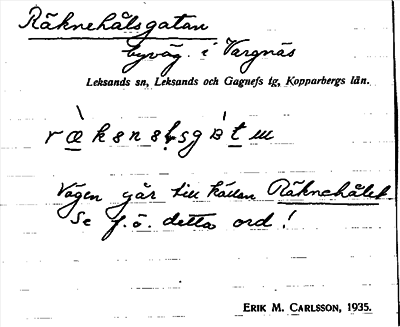 Räknehålsgatan
byväg. i Vargnäs
Leksands sn, Leksands och Gagnefs tg, Kopparbergs län.
Vägen går till källan Räknehålet
Se f. ö. detta ord!
ERIK M. CARLSSON, 1935.